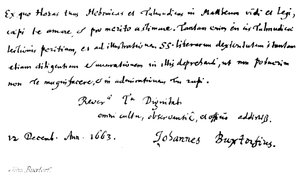 Ex quo Horas tuas Hebraicas et Talmudicas in Matthæum vidi et legi,
cœpi te amare, et pro merito æstimare. Tantam enim in iis Talmudicæ
lectionis peritiam, et ad illustrationem SS. literarum dexteritatem, tantam
etiam diligentiam et accurationem in illis deprehendi, ut non potuerim
non te magnifacere, et in admirationem tui rapi.
Rever. Tuæ Dignitati
omni cultu, observantiâ, et officio addictiss.
12 Decemb. Ann. 1663. Johannes Buxtorfius.